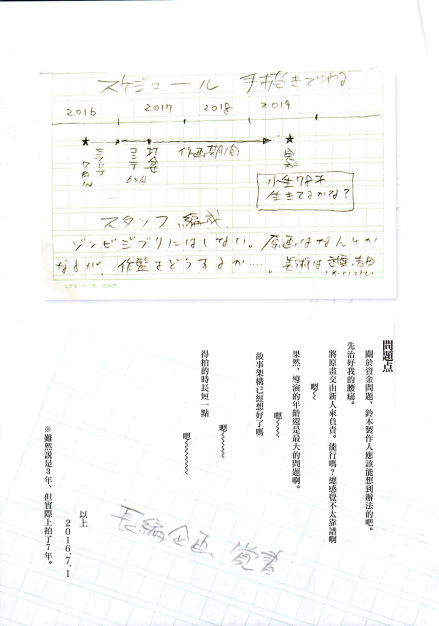 スケジュール 手描きでわる
2016 2017 2018 2019
作画期間
小生78才
生きてるかな?
スタッフ編成
ゾンビジブリにはしない。原画はなんとか
なるが、作監をどうするか……。美術は
問題点
關於資金問題、鈴木製作人應該能想到辦法的吧。
先治好我的腰痛。
將原畫交由新人來負責。能行嗎?總感覺不太靠譜啊
嗯~~~
果然、導演的年齡還是最大的問題啊。
嗯~~~~~
故事架構已經想好了嗎
嗯~~~~~~~
得拍的時長短一點
嗯~~~~~~~~~
以上
2016.7.1
※雖然說是3年、但實際上拍了7年。
長編企画、覚書